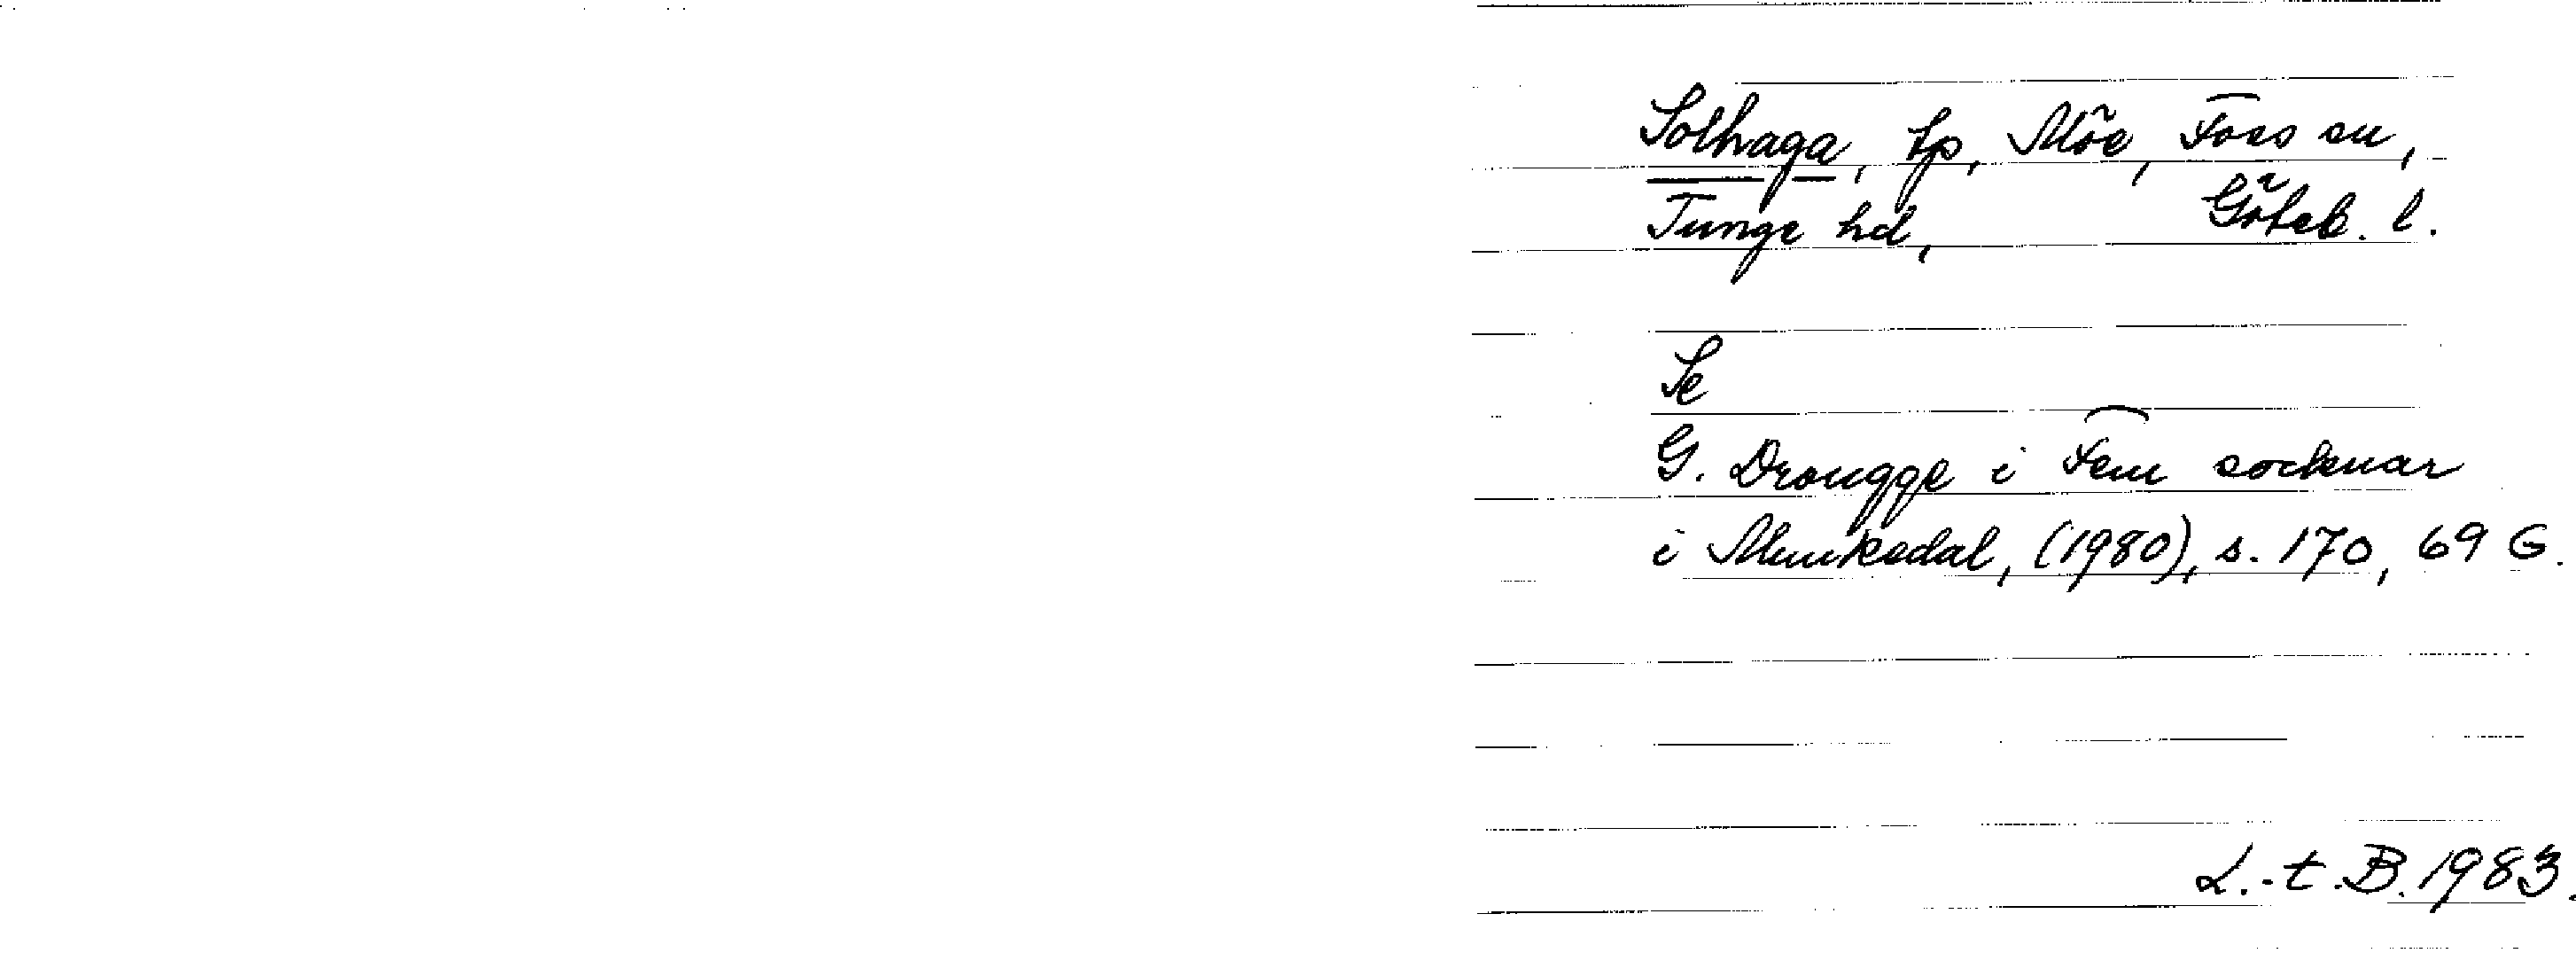 Solhaga, tp, Möe, Foss sn,
Tunge hd, Göteb. l.
Se
G. Drougge i Fem socknar
i Munkedal, (1980), s. 170, 69 G.
L.-t.B. 1983.